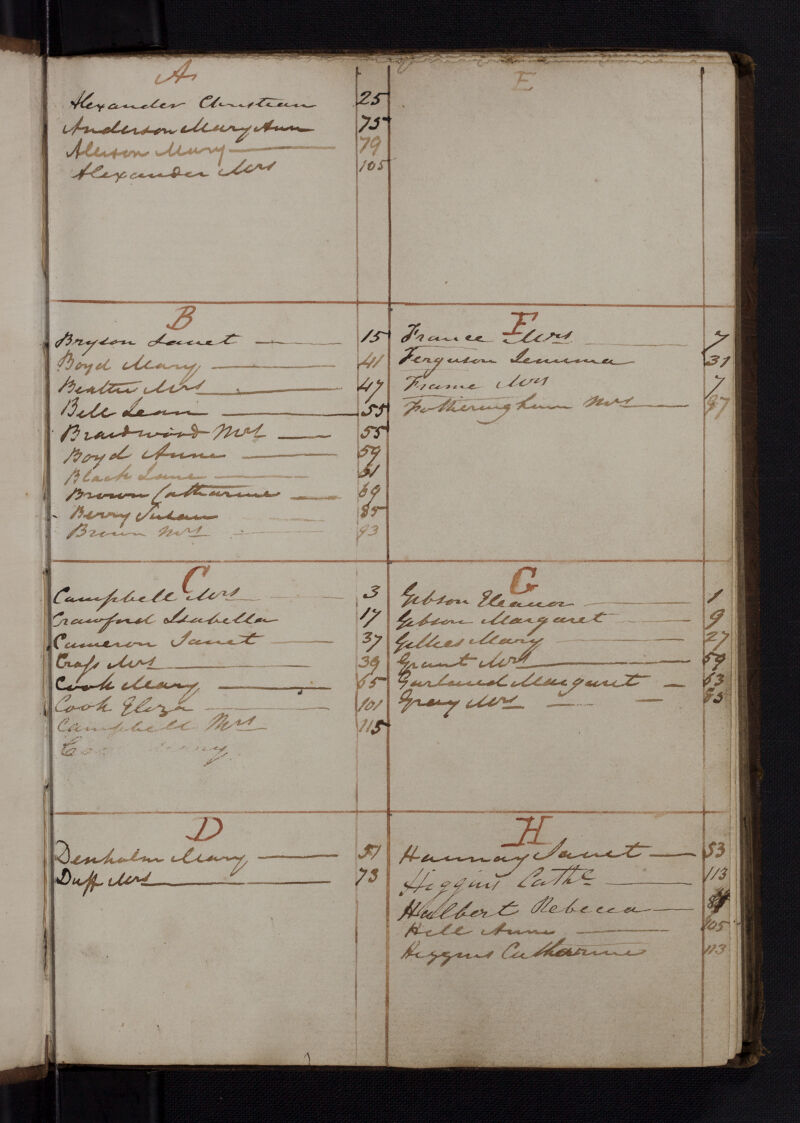 A
Alexander Christian 25
Anderson Mary Ann 75
Alison Mary 79
Alexander Mrs 105
B
Bryson Janet 15
Boyd Mary 41
Beattie Mrs 47
Bell Jean 55
Braidwood Mrs 55
Boyd Anne 59
Black Jane 51
Brown Catharine 69
Berry Susan 85
Brown Mrs 93
C
Campbell Mrs 3
Crawford Isabella 17
Cameron Janet 37
Crass Mrs 39
Cook Mary 65
Cook Eliza 101
Campbell Mrs 115
D
Denholm Mary 51
Duff Mrs 73
E
F
France Mrs 7
Ferguson Jemima 31
Frame Mrs 7
Fotheringham Mrs 97
G
Gibson Eleanor 1
Gibson Margaret 9
Gillies Mary 27
Grant Mrs 59
Garland Margaret 63
Gray Mrs 83
H
Hannay Janet 53
Higgins Cathe 113
Hulbert Rebecca
Hill Anne 105
Higgins Catharine 113